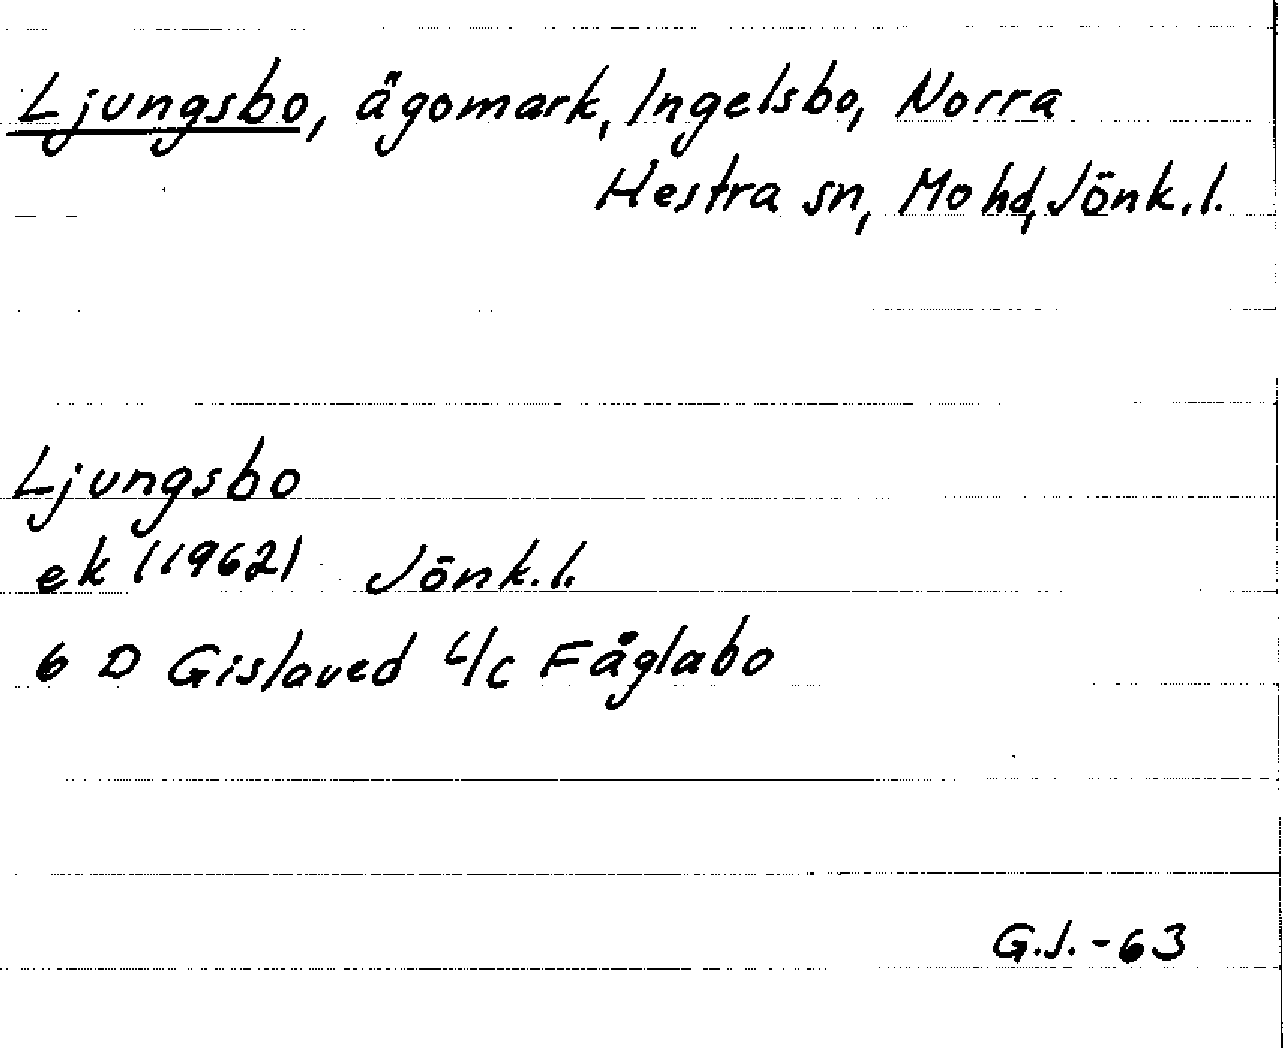 Ljungsbo, ägomark, Ingelsbo, Norra
Hestra sn, Mo hd, Jönk.l.
Ljungsbo
ek (1962) Jönk.l.
6 D Gislaved 4/c Fåglabo
G.J.-63